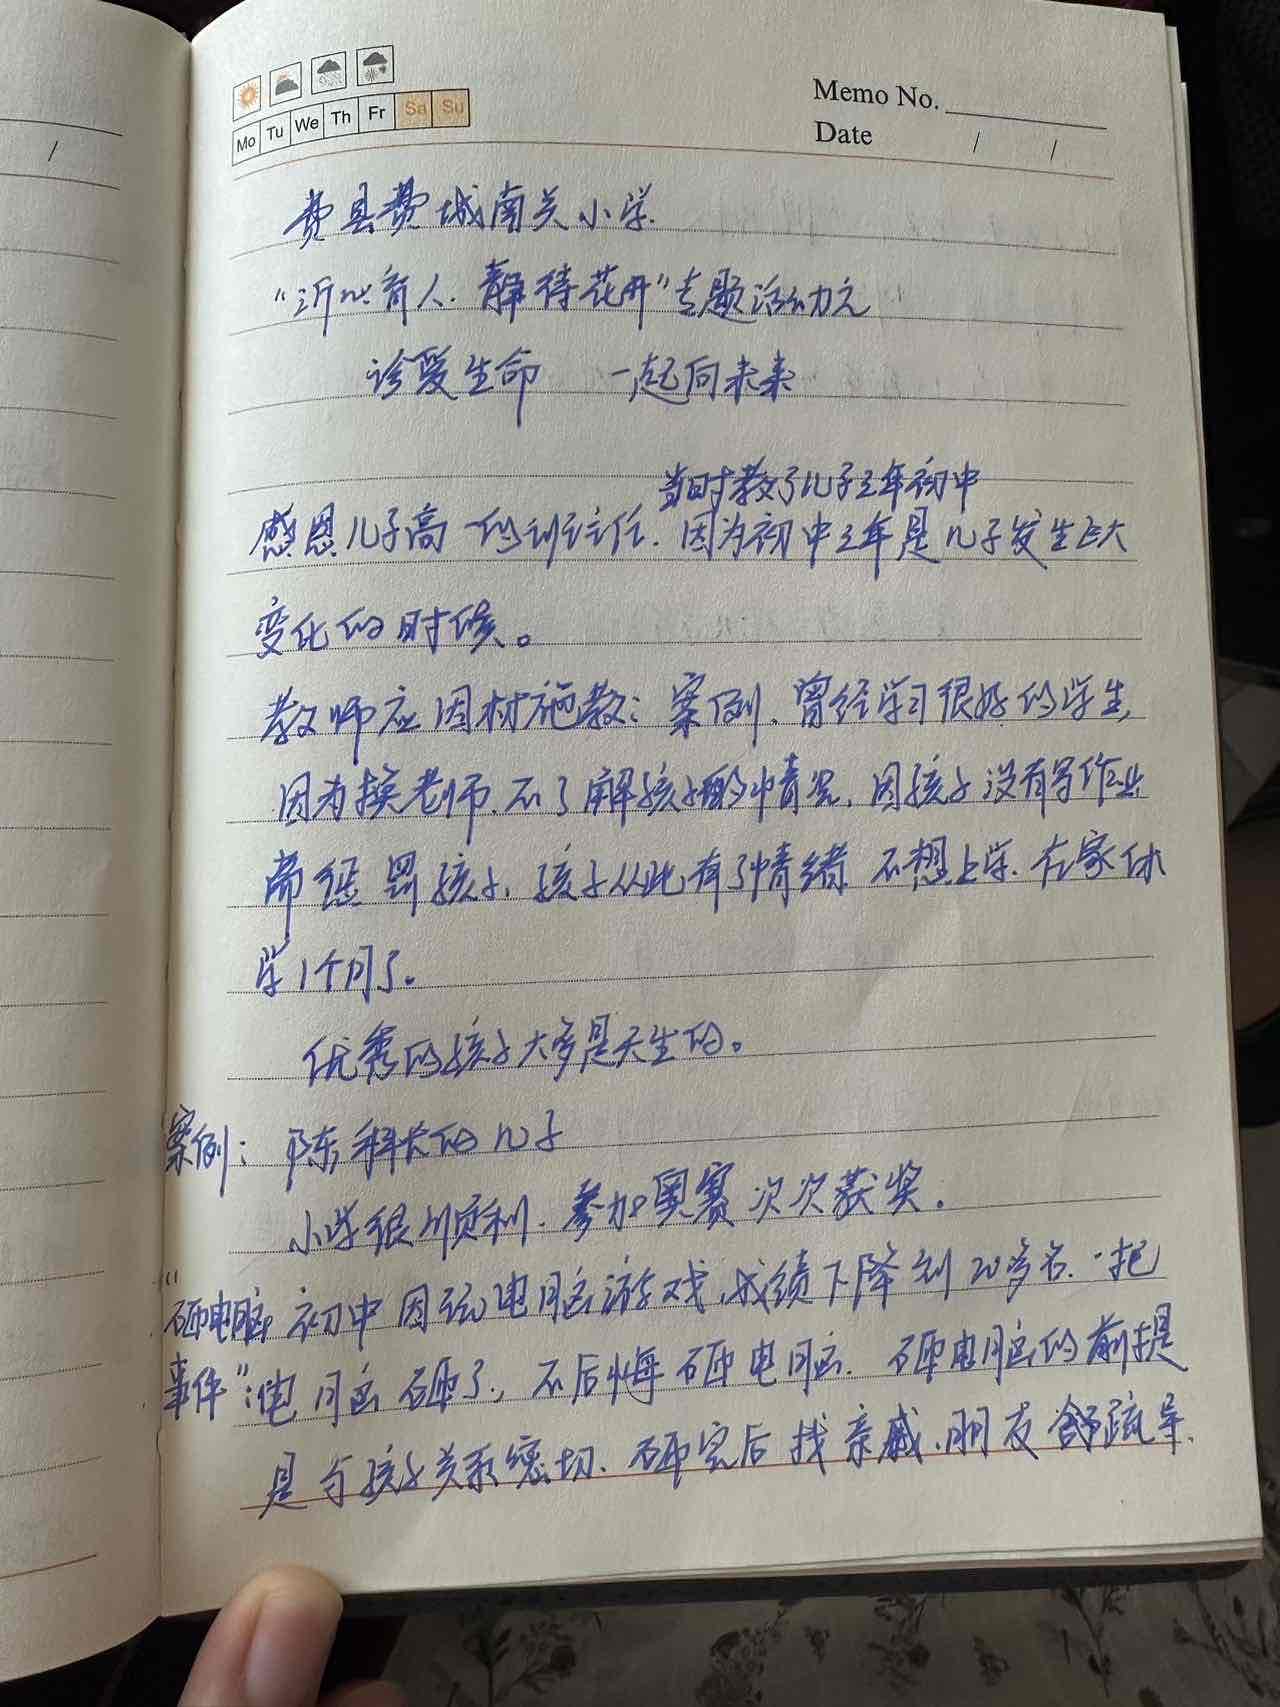 Memo No.
Date / /
Mo Tu We Th Fr Sa Su
/
费县费城南关小学.
“沂心育人.静待花开”专题活动之
珍爱生命 一起向未来
当时教了儿子三年初中
感恩儿子高一的班主任.因为初中三年是儿子发生巨大
变化的时候。
教师应因材施教:案例.曾经学习很好的学生,
因为换老师.不了解孩子的情况,因孩子没有写作业
常惩罚孩子,孩子从此有了情绪 不想上学.在家休
学1个月了。
优秀的孩子大多是天生的。
案例: 陈科长的儿子
小学很顺利.参加奥赛次次获奖.
“砸电脑 初中因玩电脑游戏,成绩下降到20多名.一把
事件”:电脑砸了,不后悔砸电脑.砸电脑的前提
是与孩子关系密切.砸完后找亲戚.朋友 疏导.